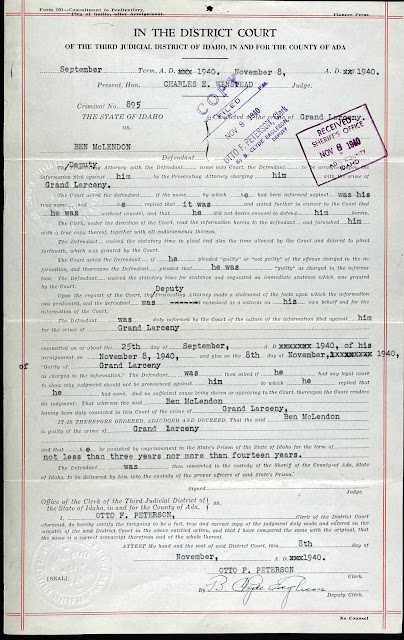 Form 101—Commitment to Penitentiary,
Plea of Guilty, after Arraignment.
Pioneer Press
IN THE DISTRICT COURT
OF THE THIRD JUDICIAL DISTRICT OF IDAHO, IN AND FOR THE COUNTY OF ADA
September Term, A. D. xxx 1940. November 8, A. D. xx 1940.
Present, Hon. CHARLES E. WINSTEAD Judge.
Criminal No. 895
THE STATE OF IDAHO
vs.
BEN McLENDON
Defendant
Convicted of the crime of Grand Larceny.
COPY
FILED
NOV 8 1940
OTTO F. PETERSON, Clerk
DEPUTY
RECEIVED
SHERIFF'S OFFICE
NOV 8 1940
ADA COUNTY
IDAHO
The Deputy Prosecuting Attorney with the Defendant came into Court, the Defendant to the
information filed against him by the Prosecuting Attorney charging him with the crime of
Grand Larceny.
The Court asked the defendant if the name by which he had been informed against was his
true name, and he replied it was and stated further in answer to the Court that
he was without counsel, and that he did not desire counsel to defend him herein.
The Court, under the direction of the Court, read the information herein to the defendant and furnished him
with a true copy thereof, together with all endorsements thereon.
The Defendant waived the statutory time to plead and also the time allowed by the Court and desired to plead
forthwith, which was granted by the Court.
The Court asked the Defendant if he pleaded "guilty" or "not guilty" of the offense charged in the in-
formation, and thereupon the Defendant pleaded that he was "guilty" as charged in the informa-
tion. The Defendant waived the statutory time for sentence and requested an immediate sentence which was granted
by the Court.
Upon the request of the Court, the Deputy Prosecuting Attorney made a statement of the facts upon which the information
was predicated, and the defendant was ------- examined as a witness on his own behalf and for the
information of the Court.
The Defendant was duly informed by the Court of the nature of the information filed against him
for the crime of Grand Larceny
committed on or about the 25th day of September, A. D. xxxxxxx 1940, of his
arraignment on November 8, 1940, and plea on the 8th day of November, xxxxxxxxx 1940
of "Guilty of Grand Larceny
as charged in the information." The Defendant was then asked if he had any legal cause
to show why judgment should not be pronounced against him to which he replied that
he had none. And no sufficient cause being shown or appearing to the Court, thereupon the Court renders
its judgment: That whereas the said Ben McLendon
having been duly convicted in this Court of the crime of Grand Larceny,
IT IS THEREFORE ORDERED, ADJUDGED AND DECREED: That the said Ben McLendon
is guilty of the crime of Grand Larceny
and that he be punished by imprisonment in the State's Prison of the State of Idaho for the term of
not less than three years nor more than fourteen years.
The Defendant was then remanded to the custody of the Sheriff of the County of Ada, State
of Idaho, to be delivered by him into the custody of the proper officers of said State's Prison.
Signed
Judge.
Office of the Clerk of the Third Judicial District of
the State of Idaho, in and for the County of Ada,
I, OTTO F. PETERSON, Clerk of the District Court
aforesaid, do hereby certify the foregoing to be a full, true and correct copy of the judgment duly made and entered on the
minutes of the said District Court in the above entitled action, and that I have compared the same with the original, that
the same is a correct transcript therefrom and of the whole thereof.
ATTEST My hand and the seal of said District Court, this 8th day of
November, A. D. xxx 1940.
OTTO F. PETERSON
Clerk.
(SEAL)
By
Deputy Clerk.
No Counsel